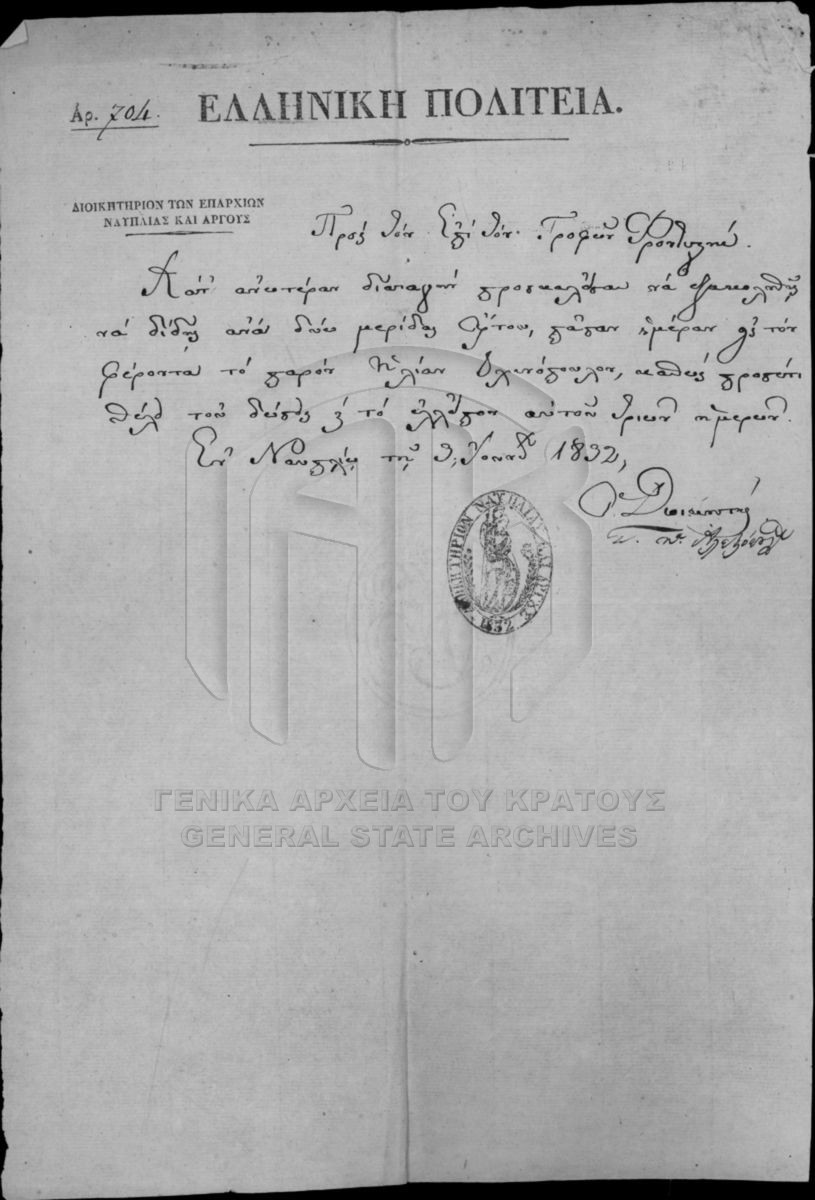 Ἀρ. 704.
ΕΛΛΗΝΙΚΗ ΠΟΛΙΤΕΙΑ.
ΔΙΟΙΚΗΤΗΡΙΟΝ ΤΩΝ ΕΠΑΡΧΙΩΝ
ΝΑΥΠΛΙΑΣ ΚΑΙ ΑΡΓΟΥΣ
Πρὸς τὸν Ἐπὶ τῶν Τροφῶν Φροντιστήν.
Κατ' ἀνωτέραν διαταγὴν προσκαλεῖσαι νὰ ἐξακολουθῇς
νὰ δίδῃς ἀνὰ δύω μερίδας ἄρτου, πᾶσαν ἡμέραν εἰς τὸν
φέροντα τὸ παρὸν Ἠλίαν, καθὼς προσέτι
θέλεις τοῦ δώσει καὶ τὸ ἐλλεῖπον αὐτοῦ τριῶν ἡμερῶν.
Ἐν Ναυπλίῳ τῇ 1832,
Ὁ Διοικητὴς
ΔΙΟΙΚΗΤΗΡΙΟΝ ΝΑΥΠΛΙΑΣ ΚΑΙ ΑΡΓΟΥΣ
1832
ΓΕΝΙΚΑ ΑΡΧΕΙΑ ΤΟΥ ΚΡΑΤΟΥΣ
GENERAL STATE ARCHIVES